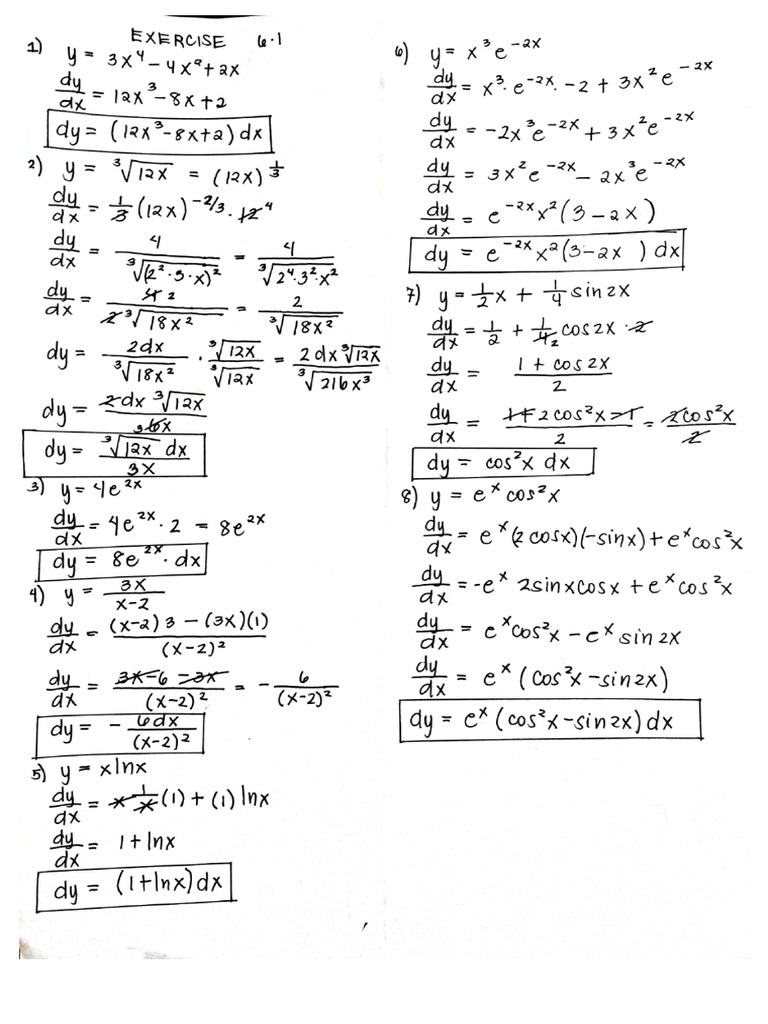 EXERCISE 6.1
1) y = 3x⁴ - 4x² + 2x
dy/dx = 12x³ - 8x + 2
dy = (12x³ - 8x + 2) dx
2) y = ³√12x = (12x)^(1/3)
dy/dx = 1/3 (12x)^(-2/3) · 12 4
dy/dx = 4/³√(2²·3·x)² = 4/³√2⁴·3²·x²
dy/dx = 4 2/2 ³√18x² = 2/³√18x²
dy = 2dx/³√18x² · ³√12x/³√12x = 2dx ³√12x/³√216x³
dy = 2dx ³√12x/36x
dy = ³√12x dx/3x
3) y = 4e^(2x)
dy/dx = 4e^(2x) · 2 = 8e^(2x)
dy = 8e^(2x) · dx
4) y = 3x/x-2
dy/dx = (x-2)3 - (3x)(1)/(x-2)²
dy/dx = 3x-6-3x/(x-2)² = - 6/(x-2)²
dy = - 6dx/(x-2)²
5) y = xlnx
dy/dx = x 1/x (1) + (1) lnx
dy/dx = 1 + lnx
dy = (1+lnx)dx
6) y = x³e^(-2x)
dy/dx = x³·e^(-2x)·-2 + 3x²e^(-2x)
dy/dx = -2x³e^(-2x) + 3x²e^(-2x)
dy/dx = 3x²e^(-2x) - 2x³e^(-2x)
dy/dx = e^(-2x)x²(3-2x)
dy = e^(-2x)x²(3-2x) dx
7) y = 1/2 x + 1/4 sin2x
dy/dx = 1/2 + 1/4 2 cos2x · 2
dy/dx = 1 + cos2x/2
dy/dx = 1+2cos²x-1/2 = 2cos²x/2
dy = cos²x dx
8) y = eˣ cos²x
dy/dx = eˣ(2cosx)(-sinx) + eˣcos²x
dy/dx = -eˣ 2sinxcosx + eˣcos²x
dy/dx = eˣcos²x - eˣ sin2x
dy/dx = eˣ (cos²x - sin2x)
dy = eˣ (cos²x - sin2x) dx